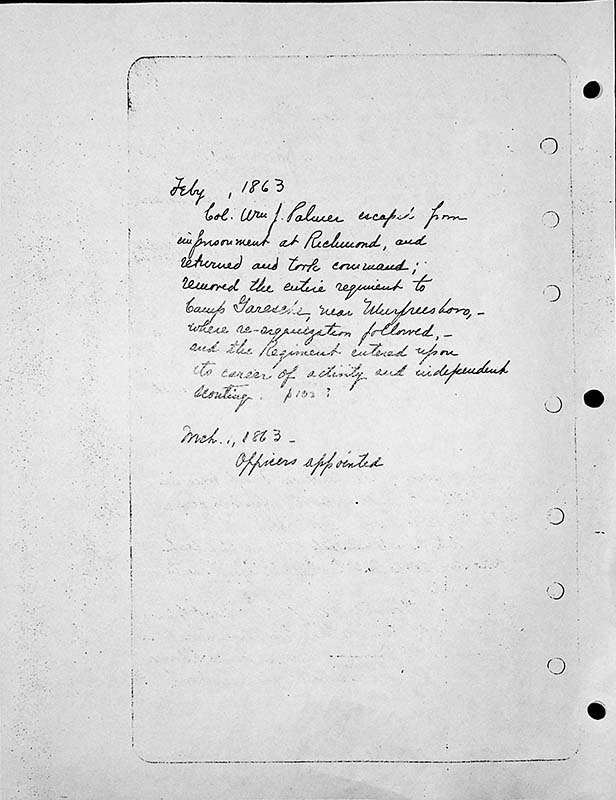 Feby , 1863
Col. Wm J. Palmer escapes from
imprisonment at Richmond, and
returned and took command;
removed the entire regiment to
Camp Garesché, near Murfreesboro,-
where re-organization followed,-
and the Regiment entered upon
its career of activity and independent
scouting.
Mch., 1863-
Officers appointed